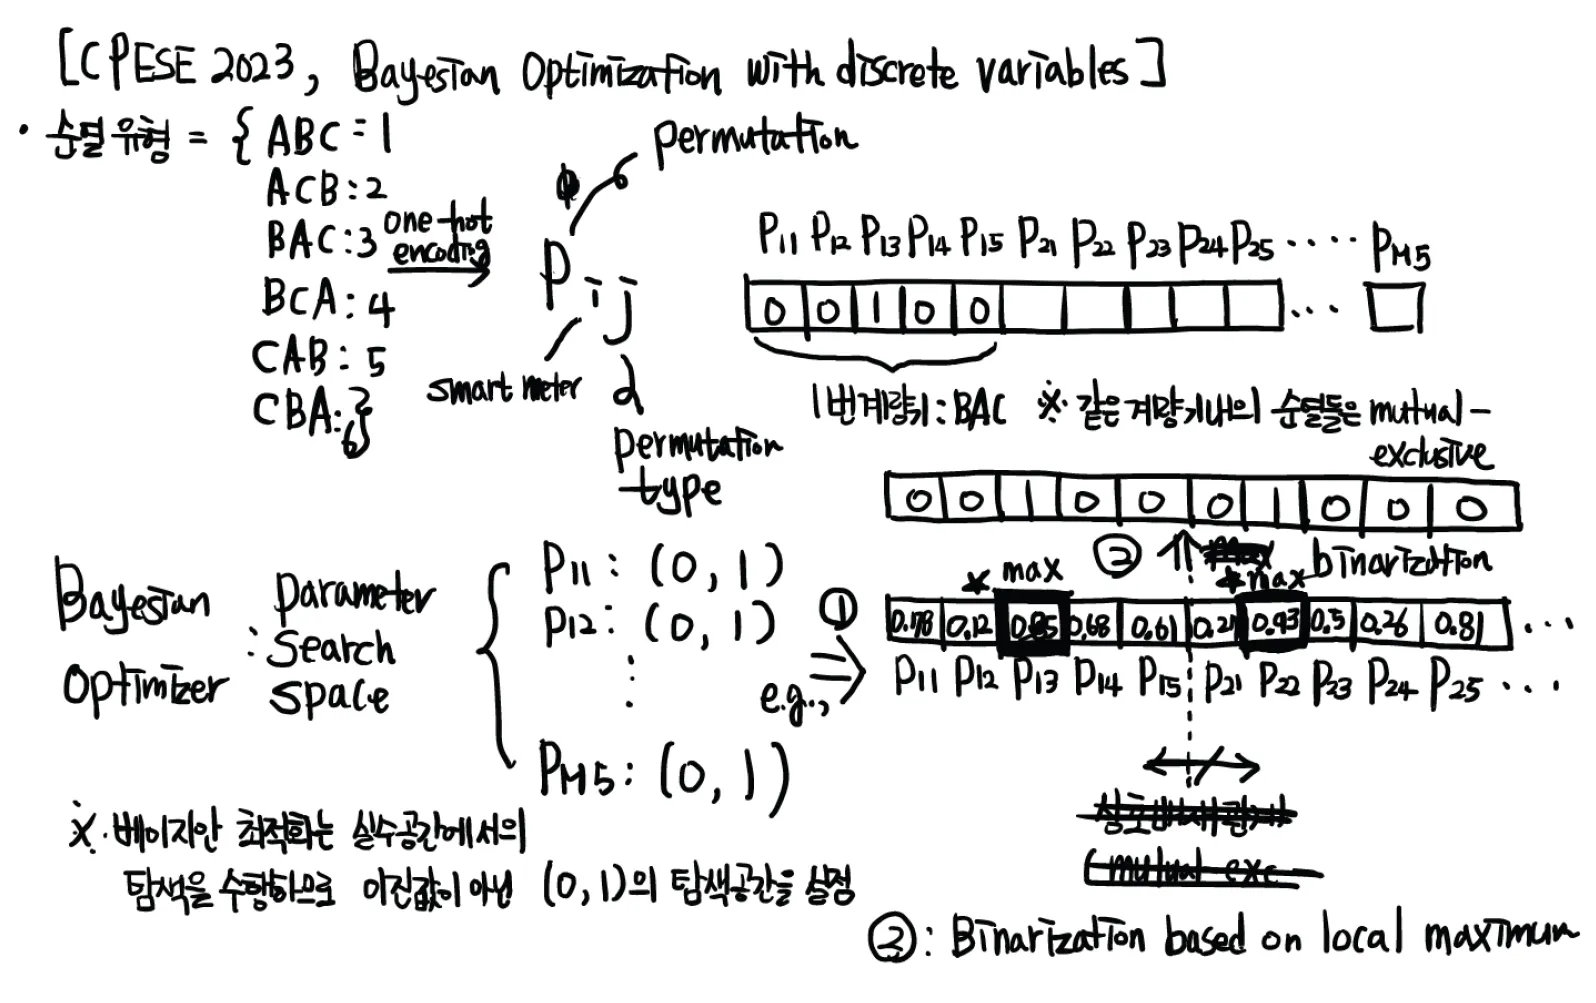 [CPESE 2023, Bayesian Optimization with discrete variables]
· 순열유형 = { ABC = 1
ACB : 2
BAC : 3
BCA : 4
CAB : 5
CBA : 6 }
one-hot
encoding
permutation
Pij
smart meter
permutation
type
P11 P12 P13 P14 P15 P21 P22 P23 P24 P25 ····· PM5
0 0 1 0 0 ...
1번계량기 : BAC ※ 같은 계량기내의 순열들은 mutual-
exclusive
0 0 1 0 0 0 1 0 0 0
② binarization
* max
* max
Bayesian
Optimizer
: Parameter
Search
Space
P11 : (0, 1)
P12 : (0, 1)
PM5 : (0, 1)
①
e.g.,
0.78 0.12 0.85 0.68 0.61 0.21 0.93 0.5 0.26 0.81 ...
P11 P12 P13 P14 P15 P21 P22 P23 P24 P25 ...
(mutual exc
※. 베이지안 최적화는 실수공간에서의
탐색을 수행하므로 이진값이 아닌 (0, 1)의 탐색공간을 설정
② : Binarization based on local maximum